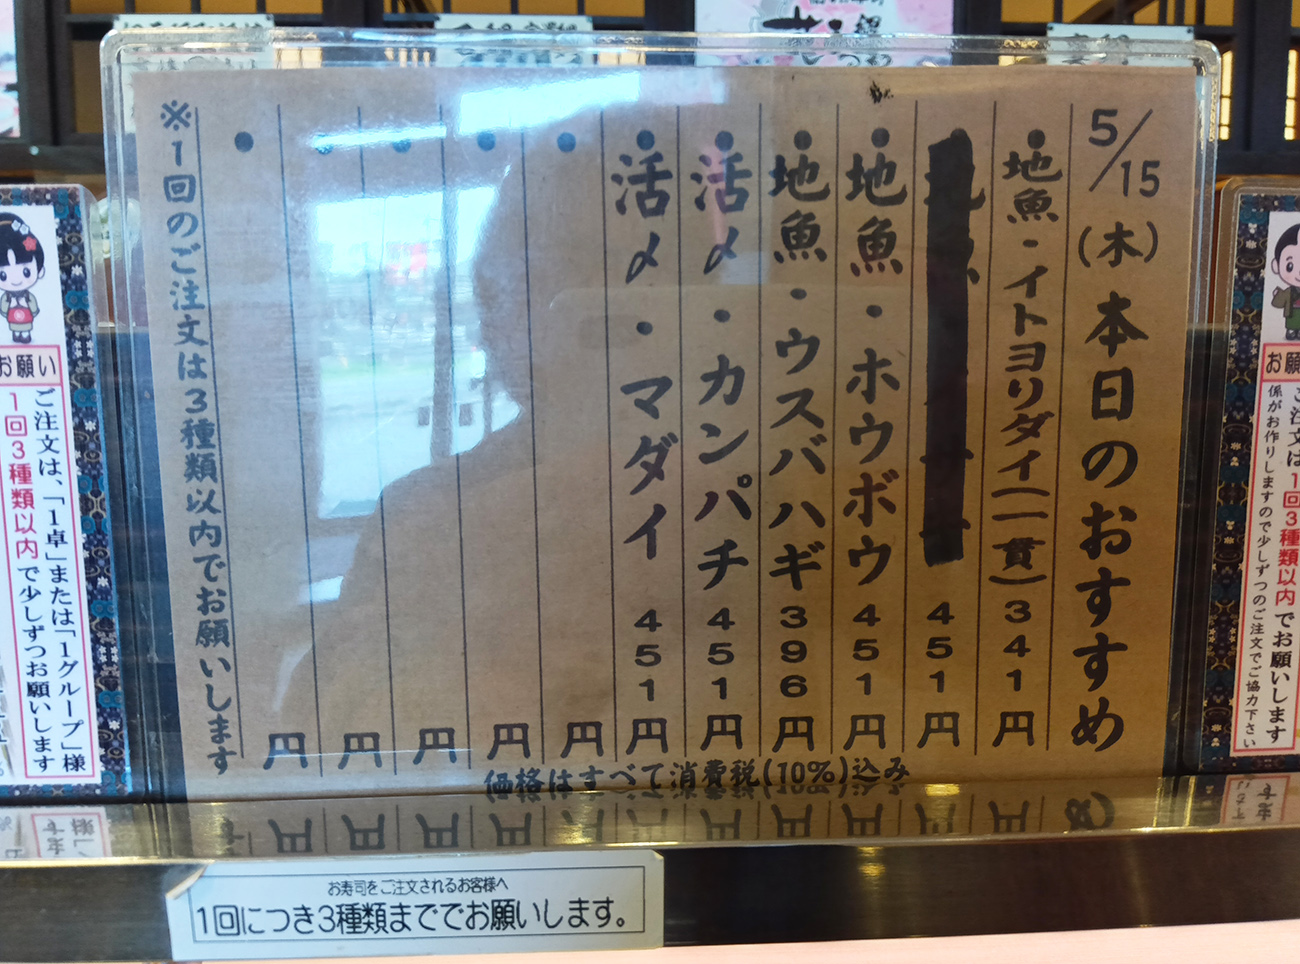 5/15(木) 本日のおすすめ
・地魚・イトヨリダイ(一貫)341円
451円
・地魚・ホウボウ451円
・地魚・ウスバハギ396円
・活〆・カンパチ451円
・活〆・マダイ451円
・円
・円
・円
・円
・円
※1回のご注文は3種類以内でお願いします
価格はすべて消費税(10%)込み
お寿司をご注文されるお客様へ
1回につき3種類まででお願いします。
お願い
ご注文は、「1卓」または「1グループ」様
1回3種類以内で少しずつお願いします
お願
ご注文は1回3種類以内でお願いします
係がお作りしますので少しずつのご注文でご協力下さい